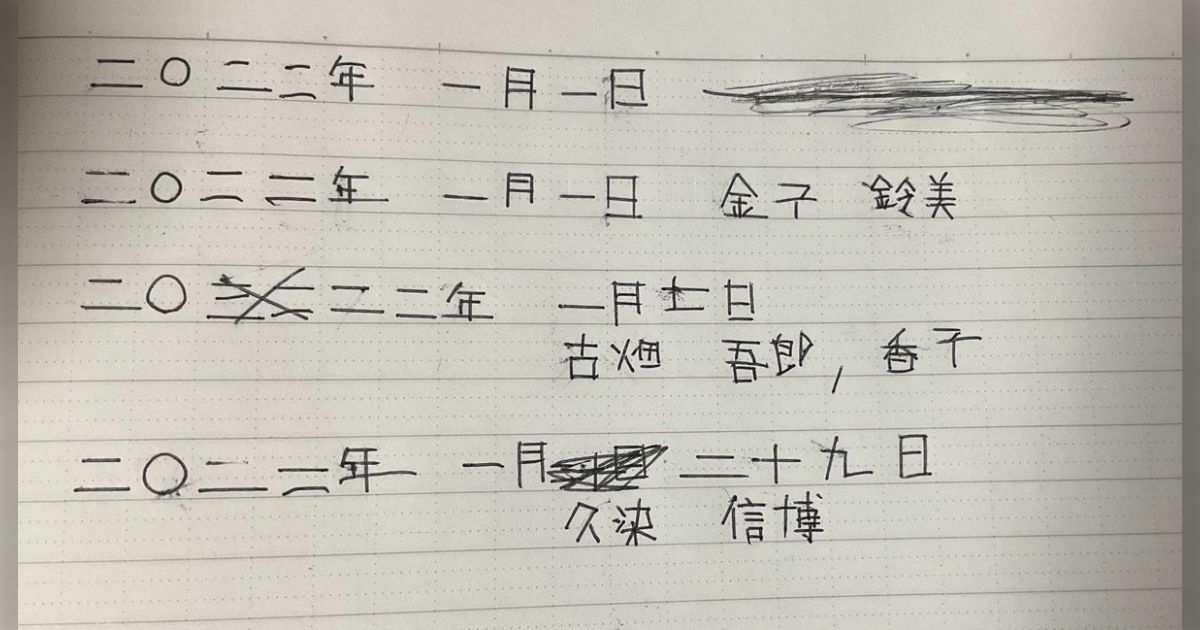 二〇二二年 一月一日
二〇二二年 一月一日 金子 鈴美
二〇二二年 一月 日
古畑 吾郎, 香子
二〇二二年 一月 二十九日
久染 信博